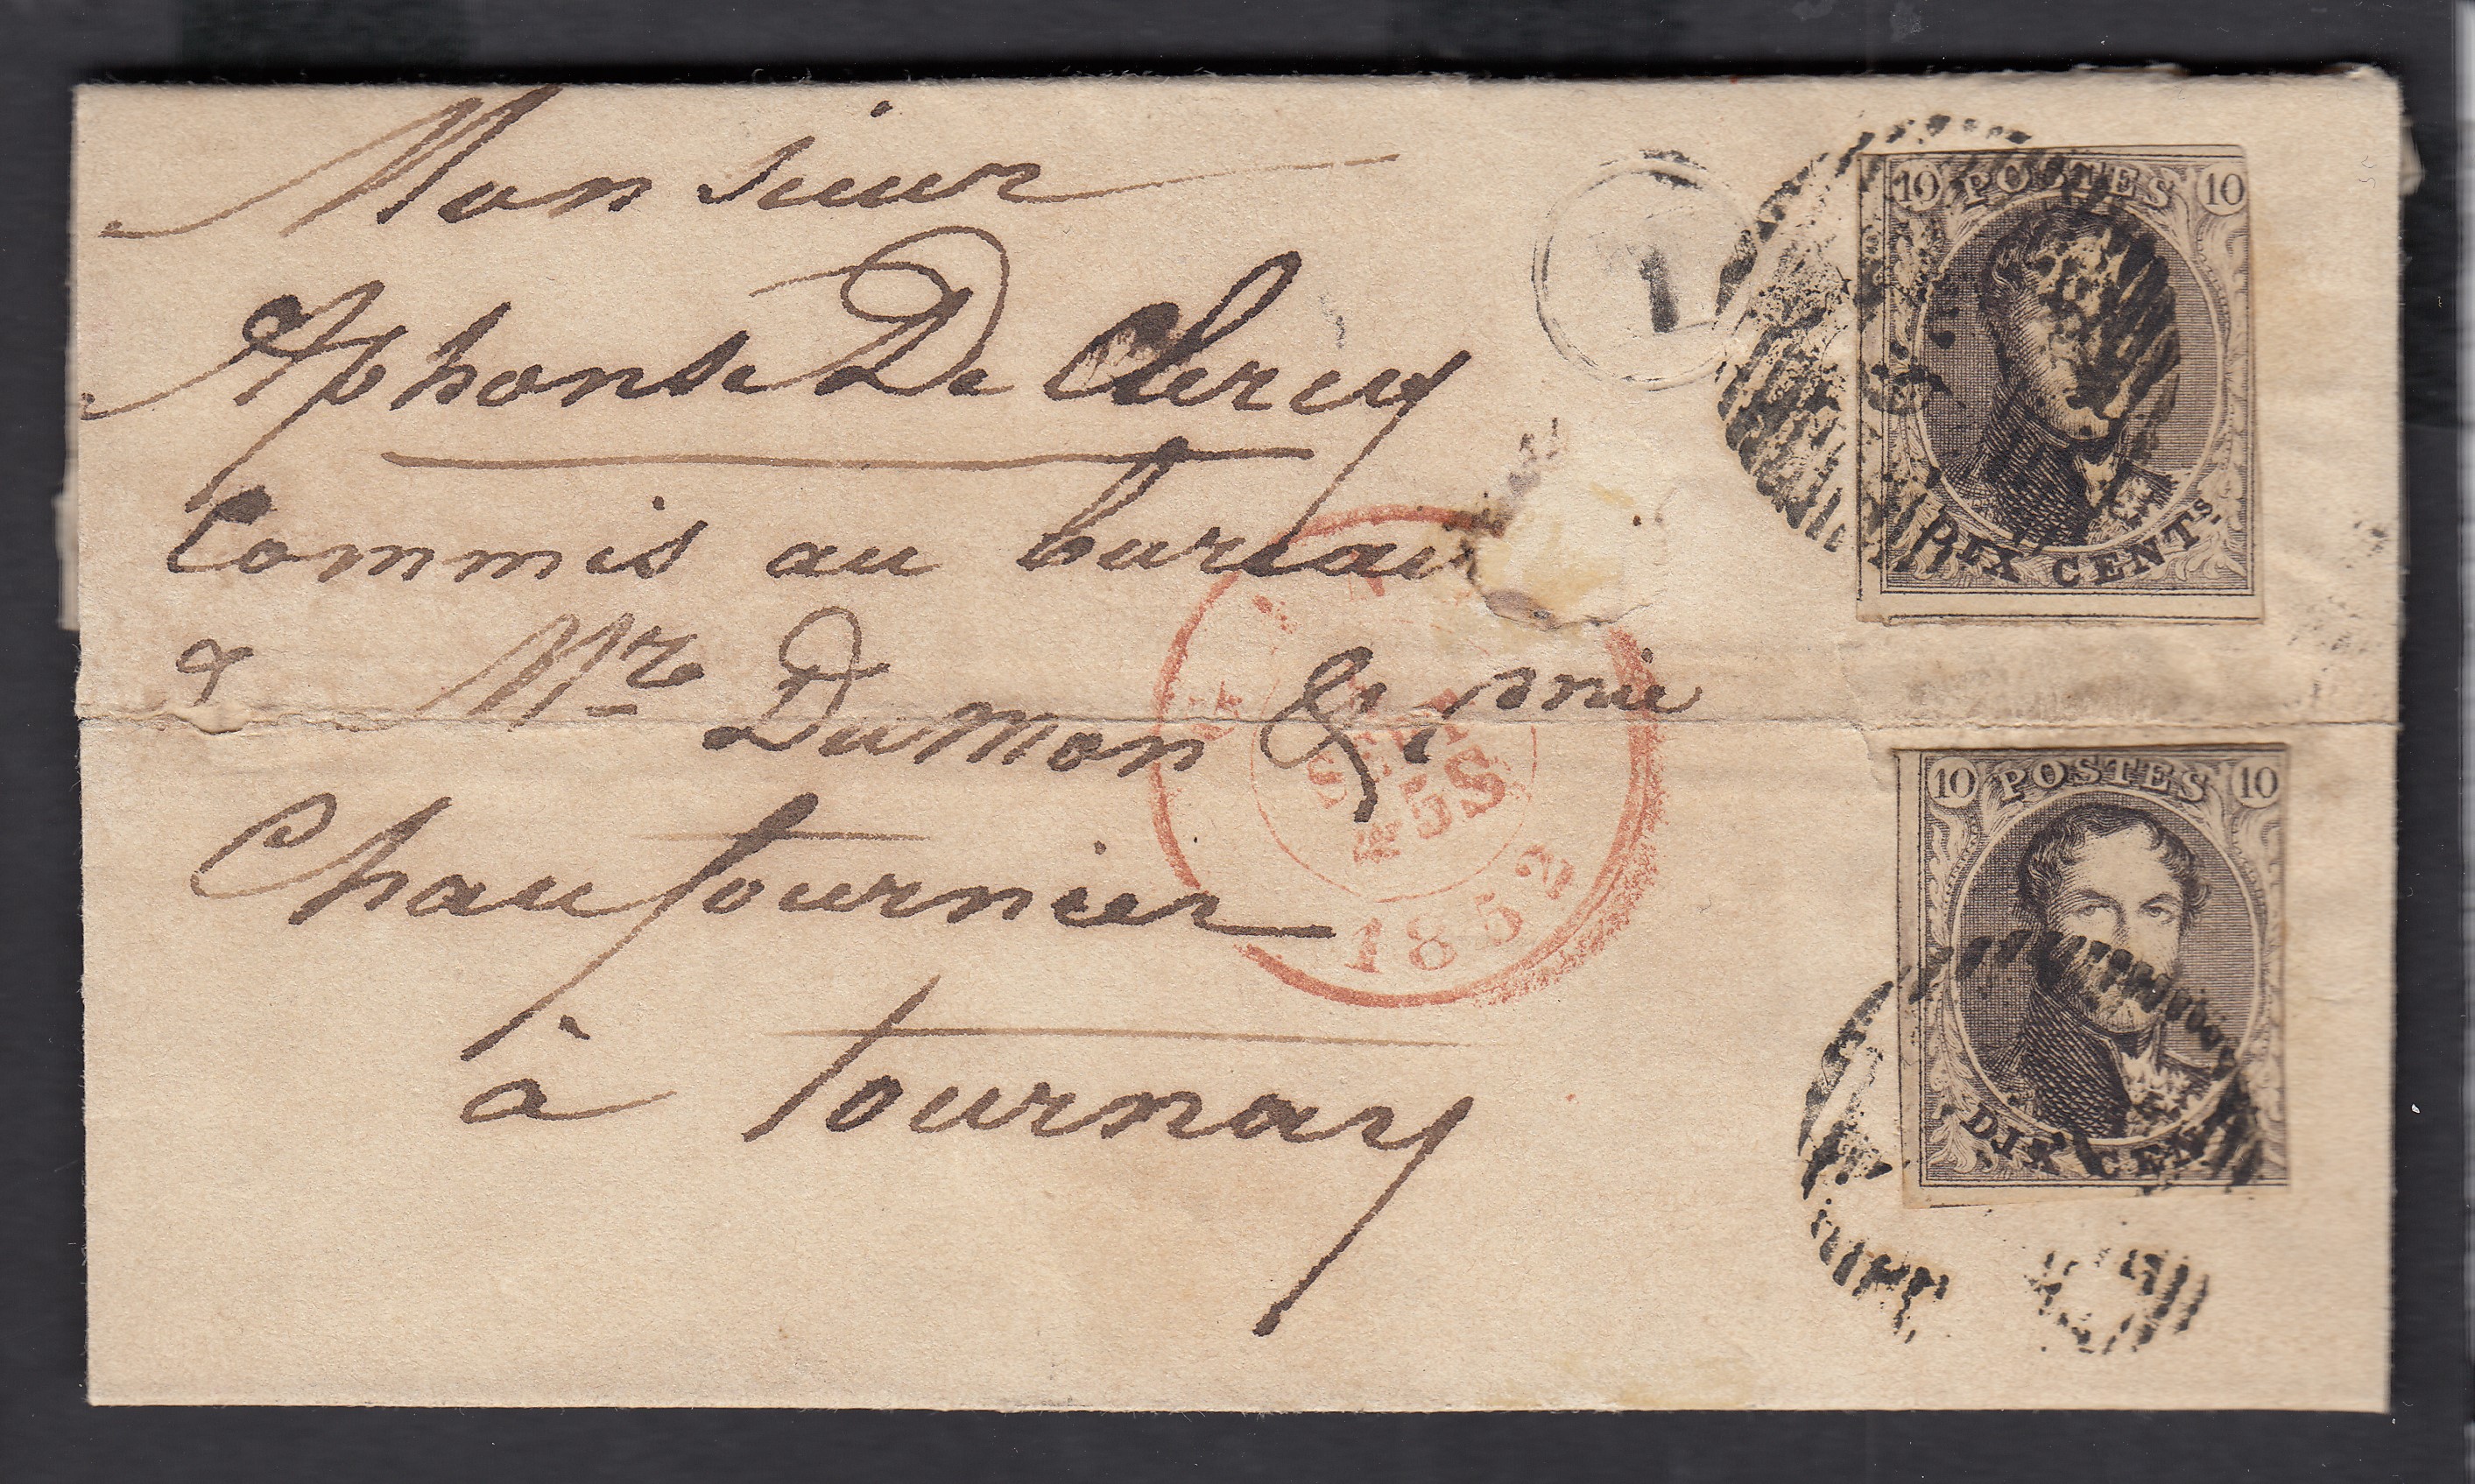 Monsieur
Alphonse De Clercq
Commis au bureau
de Mr Dumon & Cnie
Chaufournier
à tournay
1
10 POSTES 10
DIX CENTS
10 POSTES 10
DIX CEN
SEPT
5S
1852